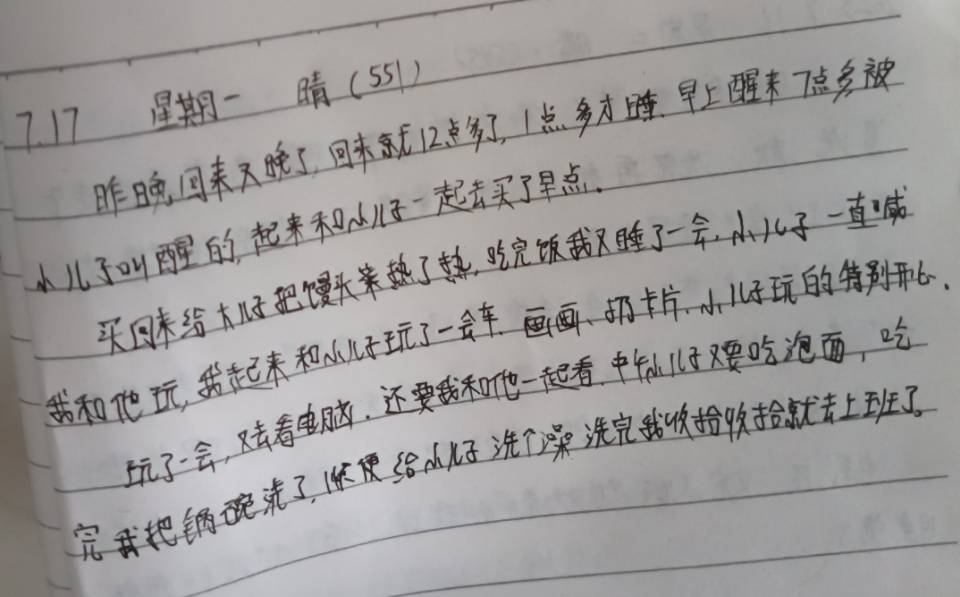 7.17 星期一 晴(551)
昨晚回来又晚了,回来就12点多了,1点多才睡.早上醒来7点多被
小儿子叫醒的,起来和小儿子一起去买了早点.
买回来给大儿子把馒头菜热了热,吃完饭我又睡了一会,小儿子一直喊
我和他玩,我起来和小儿子玩了一会车.画画、扔卡片,小儿子玩的特别开心.
玩了一会,又去看电脑.还要我和他一起看.中午小儿子又要吃泡面,吃
完我把锅碗洗了,顺便给小儿子洗个澡 洗完我收拾收拾就去上班了。